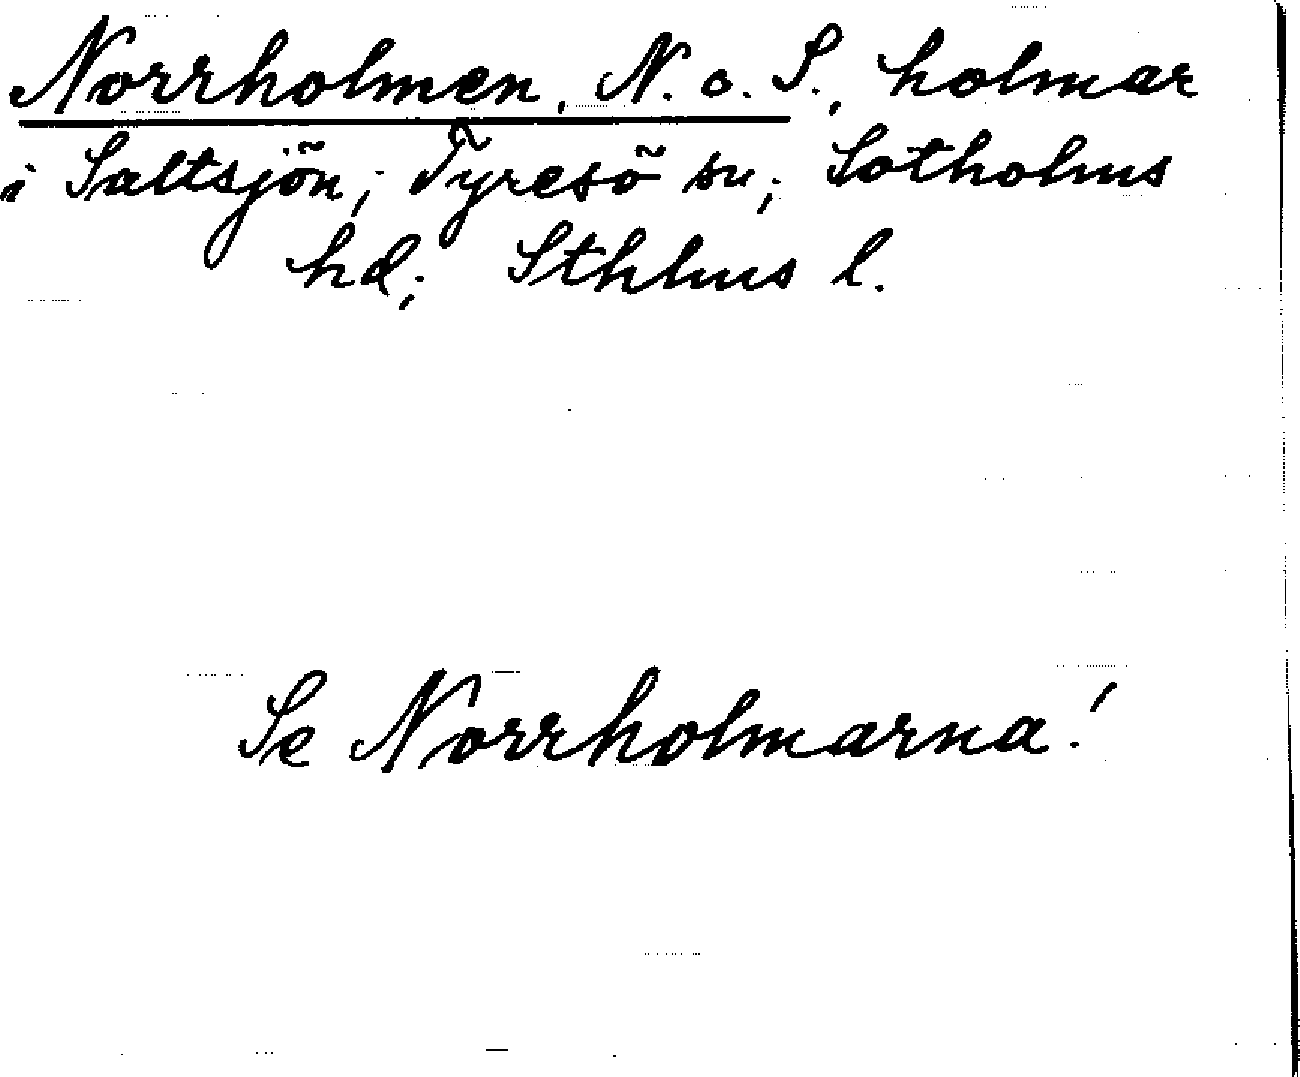 Norrholmen, N. o. S., holmar
i Saltsjön; Tyresö sn; Sotholms
hd; Sthlms l.
Se Norrholmarna!